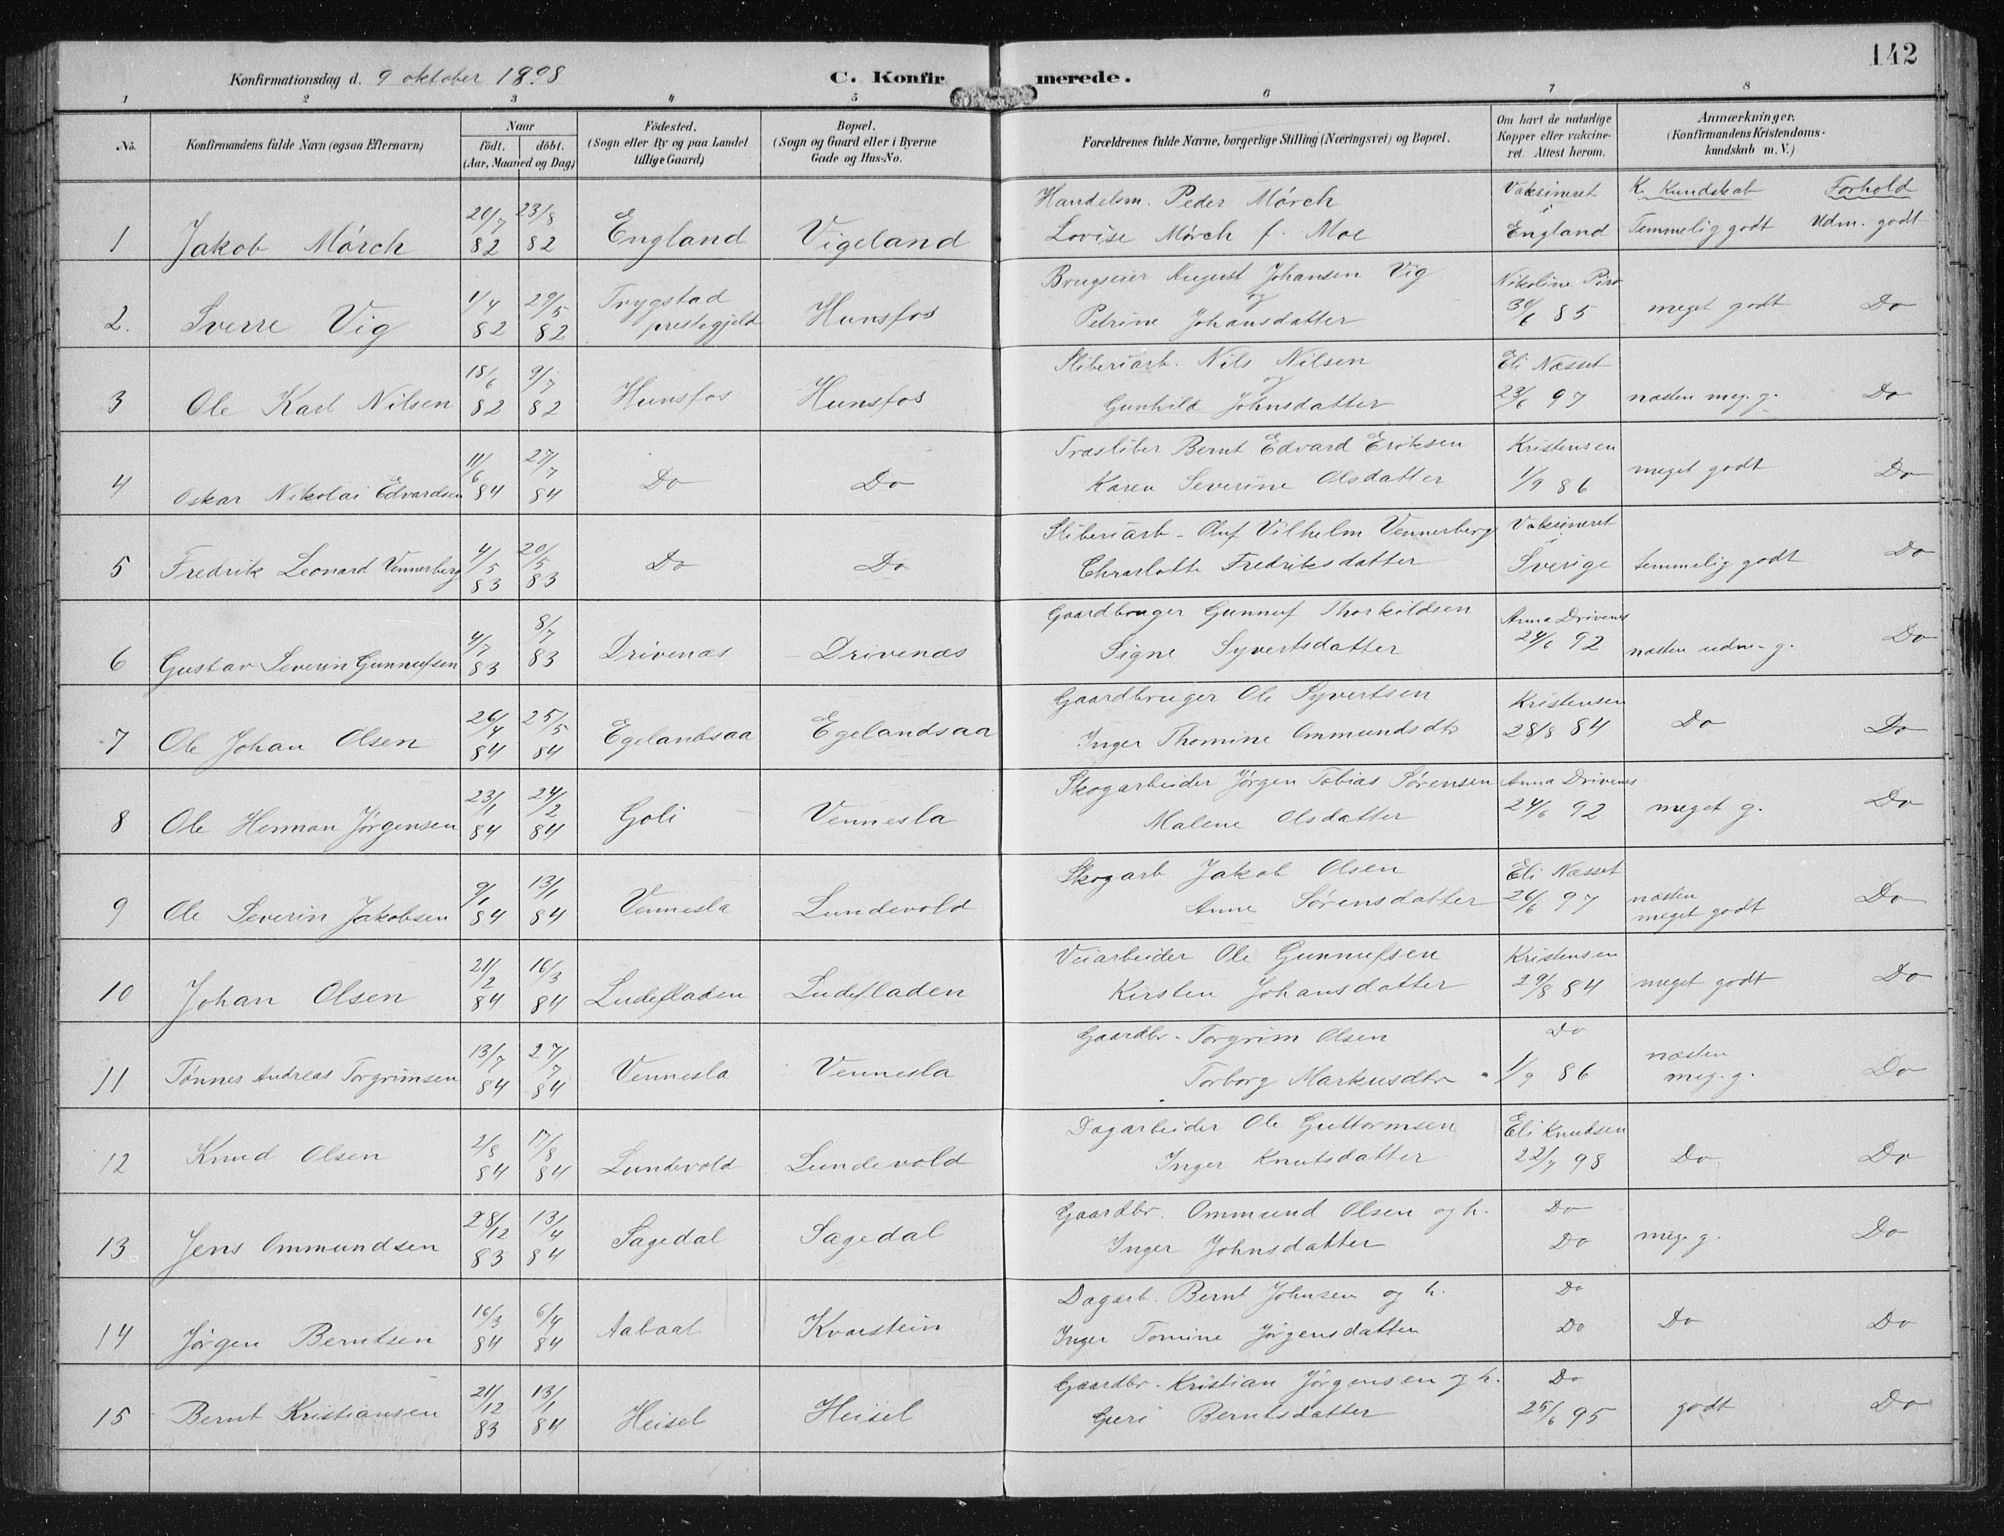 142
Konfirmationsdag d. 9 oktober 1898
C. Konfirmerede.
1 2 3 4 5 6 7 8
No. Konfirmandens fulde Navn (ogsaa Efternavn) Naar født. døbt. (Aar, Maaned og Dag) Födested. (Sogn eller By og paa Landet tillige Gaard) Bopæl. (Sogn og Gaard eller i Byerne Gade og Hus-No. Forældrenes fulde Navne, borgerlige Stilling (Næringsvei) og Bopæl. Om havt de naturlige Kopper eller vakcineret. Attest herom. Anmærkninger. (Konfirmandens Kristendomskundskab m. V.)
K. Kundskab Forhold
1 Jakob Mørch 20/7 82 23/8 82 England Vigeland Handelsm. Peder Mørch
Lovise Mørch f. Moe Vaksineret i England Temmelig godt Udm. godt
2. Sverre Vig 1/4 82 29/5 82 Trygstad prestegjeld Hunsfos Brugseier August Johansen Vig
og Petrine Johansdatter Nikoline Piro 30/6 85 meget godt Do
3 Ole Karl Nilsen 18/6 82 9/7 82 Hunsfos Hunsfos Sliberiarb. Nils Nilsen
og Gunhild Johnsdatter Eli Næsset 23/6 97 næsten meg. g. Do
4 Oskar Nikolai Edvardsen 11/6 84 27/7 84 Do Do Træsliber Bernt Edvard Eriksen
Karen Severine Olsdatter Kristensen 1/9 86 meget godt Do
5 Fredrik Leonard Vennerberg 4/5 83 20/5 83 Do Do Sliberiarb. Oluf Vilhelm Vennerberg
Chrarlotte Fredriksdatter Vaksineret i Sverige temmelig godt Do
6 Gustav Severin Gunnufsen 4/7 83 8/7 83 Drivenæs Drivenæs Gaardbruger Gunnuf Thorkildsen
Signe Syvertsdatter Anna Drivenes 24/6 92 næsten udm. g. Do
7 Ole Johan Olsen 26/4 84 25/5 84 Egelandsaa Egelandsaa Gaardbruger Ole Syvertsen
Inger Thomine Ommundsdtr Kristensen 28/8 84 Do Do
8 Ole Herman Jørgensen 23/1 84 24/2 84 Goli Vennesla Skogarbeider Jørgen Tobias Sørensen
Malene Olsdatter Anna Drivenes 24/6 92 meget g. Do
9 Ole Severin Jakobsen 9/1 84 13/1 84 Vennesla Lundevold Skogarb Jakob Olsen
Anne Sørensdatter Eli Næsset 26/6 97 næsten meget godt Do
10 Johan Olsen 21/2 84 16/3 84 Ludefladen Ludefladen Veiarbeider Ole Gunnufsen
Kirsten Johansdatter Kristensen 29/8 84 meget godt Do
11 Tønnes Andreas Torgrimsen 13/7 84 27/7 84 Vennesla Vennesla Gaardbr. Torgrim Olsen
Torborg Markusdtr Do 1/9 86 næsten meg. g. Do
12 Knud Olsen 2/8 84 17/8 84 Lundevold Lundevold Dagarbeider Ole Guttormsen
Inger Knutsdatter Eli Knudsen 22/7 98 Do Do
13 Jens Ommundsen 28/12 83 13/4 84 Sagedal Sagedal Gaardbr. Ommund Olsen og h.
Inger Johnsdatter Do Do meg. g. Do
14 Jørgen Berntsen 16/3 84 6/4 84 Aabaal Kvarstein Dagarb. Bernt Johnsen og h.
Inger Tomine Jørgensdatter Do Do Do Do
15 Bernt Kristiansen 21/12 83 13/1 84 Heisel Heisel Gaardbr. Kristian Jørgensen og h.
Guri Berntsdatter Do 25/6 95 godt Do